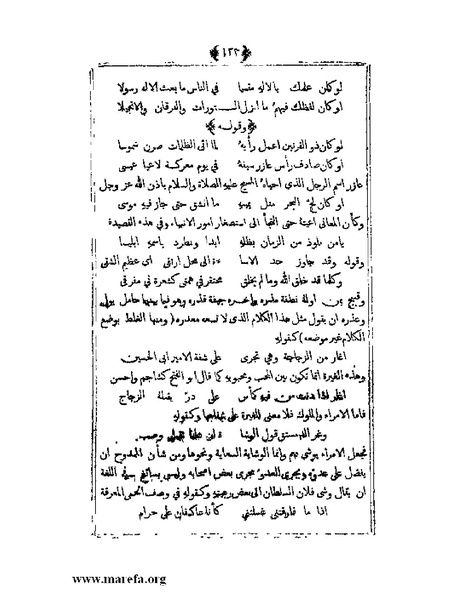 ﴿١٢٢﴾
لو كان علمك بالاله مقسما في الناس ما بعث الاله رسولا
او كان لفظك فيهم ما انزل التورات والفرقان والانجيلا
﴿وقوله﴾
لو كان ذو القرنين اعمل رأيه لما اتى الظلمات صرن شموسا
او كان صادف رأس عازر سيفه في يوم معركة لاعيا عيسى
عازر اسم الرجل الذى احياه المسيح عليه الصلاة والسلام باذن الله عز وجل
او كان لج البحر مثل يمينه ما انشق حتى جاز فيه موسى
وكأن المعانى اعيته حتى التجأ الى استصغار امور الانبياء وفي هذه القصيدة
يامن نلوذ من الزمان بظله ابدا ونطرد باسمه ابليسا
وقوله وقد جاوز حد الاسا ءة اى محل ارتقى اى عظيم اتقى
وكلما قد خلق الله وما لم يخلق محتقر في همتى كشعرة في مفرقى
وقبيح بمن اوله نطفة مذره وآخره جيفة قذره وهو فيما بينهما حامل بول
وعذره ان يقول مثل هذا الكلام الذى لا تسعه معذره (ومنها الغلط بوضع
الكلام غير موضعه) كقوله
اغار من الزجاجة وهي تجرى على شفة الامير ابى الحسين
وهذه الغيرة انما تكون بين المحب ومحبوبه كما قال ابو الفتح كشاجم واحسن
اغار اذا دنت من فيه كأس على در يقبله الزجاج
فاما الامراء والملوك فلا معنى للغيرة على شفاهها وكقوله
وغر الدمستق قول الوشاة ان عليا ثقيل وصب
فجعل الامراء يوشى بهم وانما الوشاية السعاية ونحوها ومن شأن الممدوح ان
يفضل على عدوه ويجرى العدو مجرى بعض اصحابه وليس بسائغ في اللغة
ان يقال وشى فلان السلطان الى بعض رعيته وكقوله في وصف الحمى المعرقة
اذا ما فارقتنى غسلتنى كأنا عاكفان على حرام
www.marefa.org